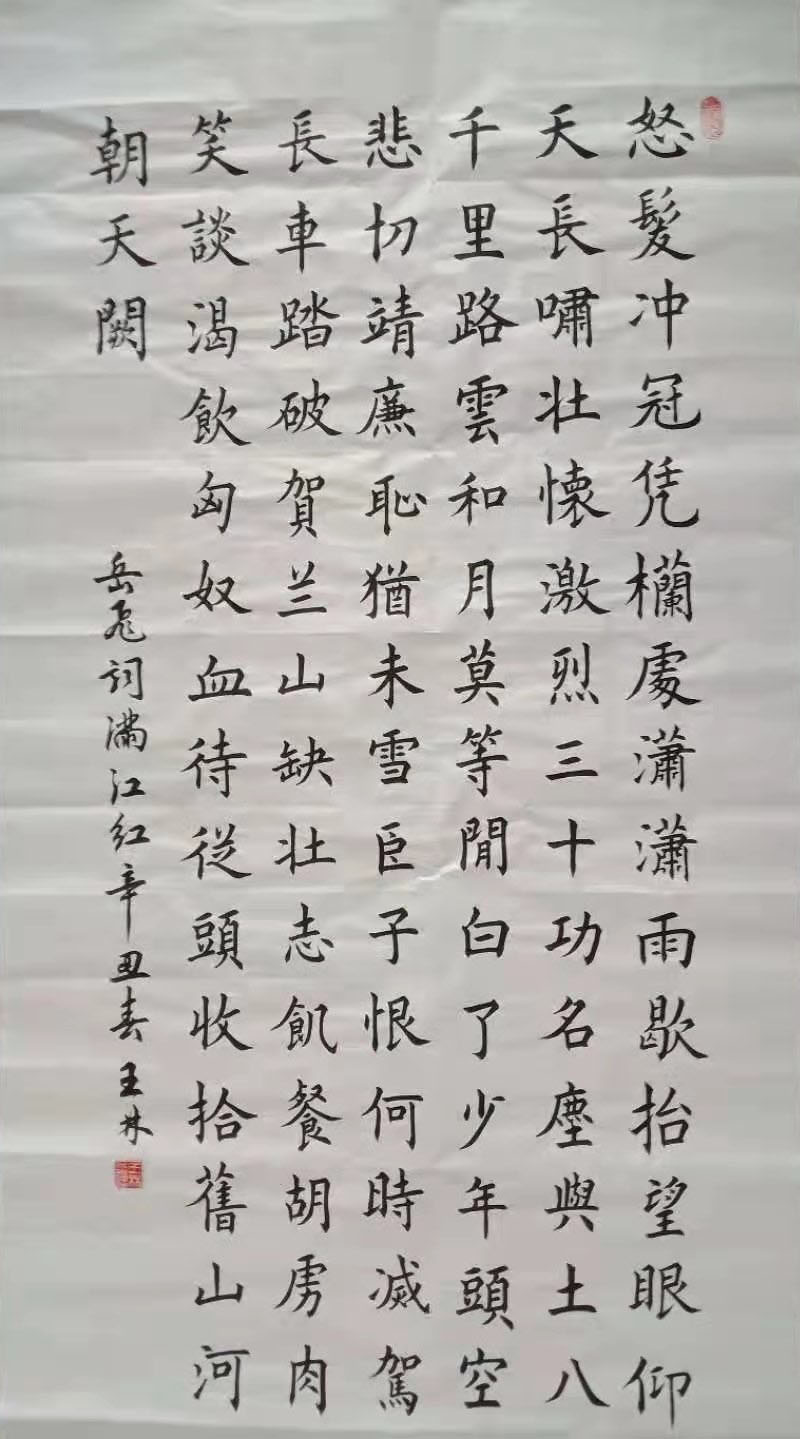 怒髮冲冠凭欄處瀟瀟雨歇抬望眼仰
天長嘯壮懷激烈三十功名塵與土八
千里路雲和月莫等閒白了少年頭空
悲切靖廉恥猶未雪臣子恨何時滅駕
長車踏破賀兰山缺壮志飢餐胡虏肉
笑談渴飲匈奴血待從頭收拾舊山河
朝天闕
岳飛词满江红辛丑春王林